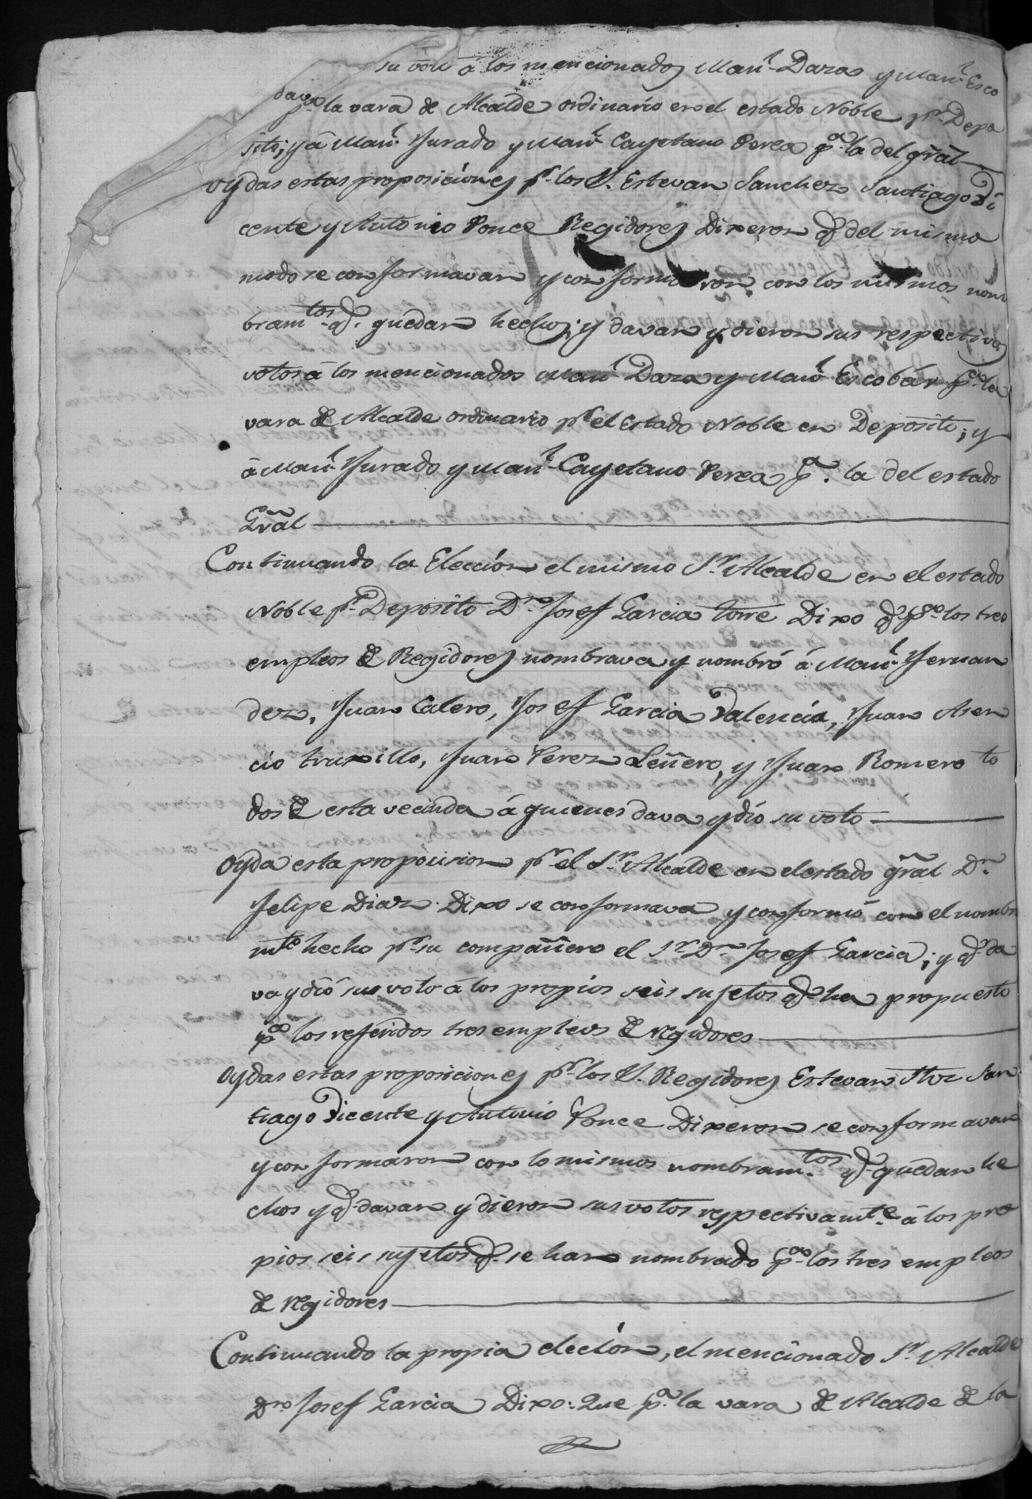 su voto â los mencionados Man.l Daza y Man.l Esco
p.a la vara de Alcalde ordinario en el estado Noble p.r Depo
sito; y â Man.l Jurado y Man.l Cayetano Perea p.a la del gr̃al
Oydas estas proposiciones p.r los S.S. Estevan Sanchez Santiago Vi
cente y Antonio Ponce Regidores Dixeron q.e del mismo
modo se conformavan y conformaron con los mismos nom
bram.tos q.e quedan hechos; y davan y dieron sus respectivos
votos â los mencionados Man.l Daza y Man.l Escobar p.a la
vara de Alcalde ordinario p.r el Estado Noble en Deposito; y
â Man.l Jurado y Man.l Cayetano Perea p.a la del estado
Gr̃al
Continuando la Elección el mismo S.r Alcalde en el estado
Noble p.r Deposito D.n Josef Garcia Torre Dixo q.e p.a los tres
empleos de Regidores nombrava y nombró á Man.l Hernan
dez, Juan Calero, Josef Garcia Valencia, Juan Asen
cio truxillo, Juan Perez Leñero, y Juan Romero to
dos de esta vecinda á quienes dava y dio su voto
Oyda esta proposicion p.r el S.r Alcalde en el estado gr̃al D.n
Felipe Diaz Dixo se conformava y conformó con el nombra
mto hecho p.r su compañero el S.r D.n Josef Garcia; y q.e da
va y dió su voto â los propios seis sujetos q.e ha propuesto
p.a los referidos tres empleos de regidores
Oydas estas proposiciones p.r los S.S. Regidores Estevan Shz San
tiago Vicente y Antonio Ponce Dixeron se conformavan
y conformaron con lo mismos nombram.tos q.e quedan he
chos y q.e davan y dieron sus votos respectivam.te â los pro
pios seis sujetos q.e se han nombrado p.a los tres empleos
de regidores
Continuando la propia eleción, el mencionado S.r Alcalde
D.n Josef Garcia Dixo: Que p.a la vara de Alcalde de la